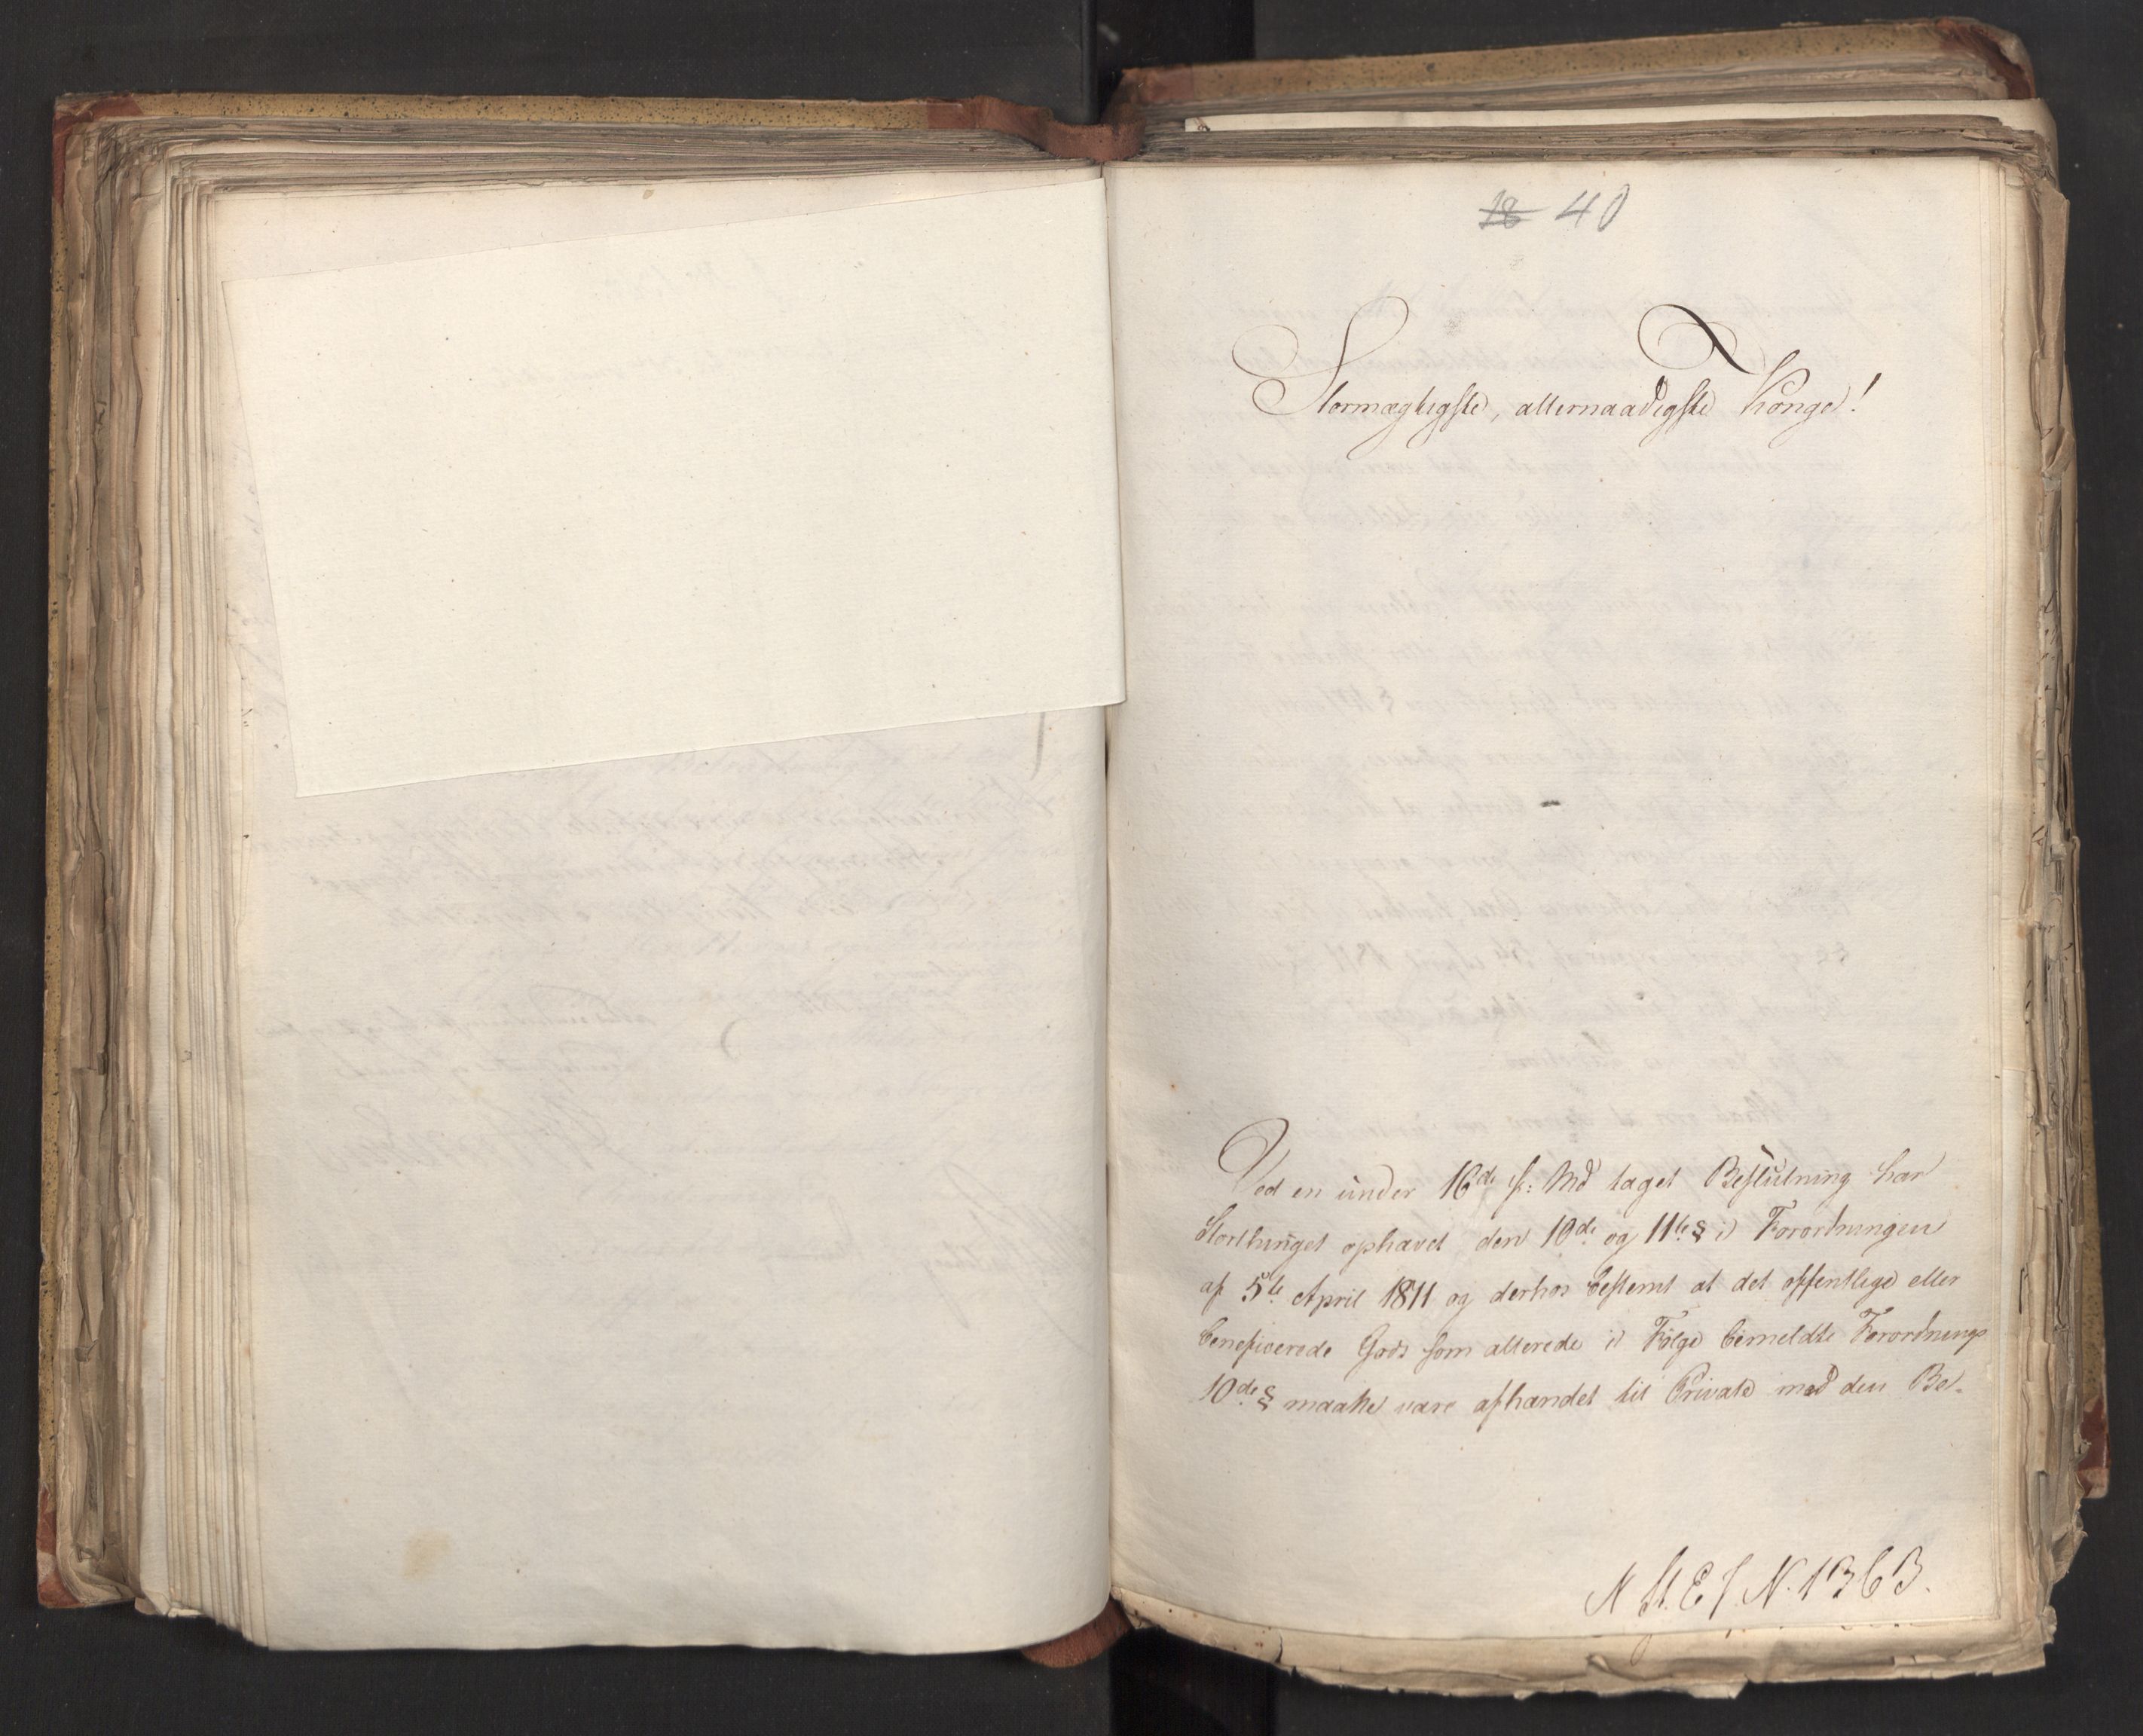 18 40
Stormægtigste, allernaadigste Konge!
Ved en under 16de f: Md taget Beslutning har
Storthinget ophævet den 10de og 11te § i Forordningen
af 5te April 1811 og derhos bestemt at det offentlige eller
beneficerede Gods som allerede i Følge bemeldte Forordnings
10de § maatte være afhændet til Private med den Be-
N St. E J. N. 1363.